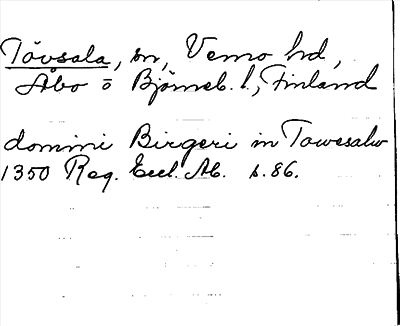 Tövsala, sn, Vemo hd,
Åbo o Björneb. l., Finland
domini Birgeri in Towesalw
1350 Reg. Eccl. Ab. s. 86.